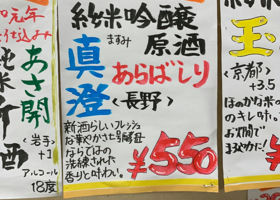 元年
仕込み
あさ開
純米
新酒
<岩手>
+1
アルコール
18度
純米吟醸
原酒
ますみ
真澄
あらばしり
<長野>
新酒らしいフレッシュ
な華やかさと七号酵母
ならではの
洗練された
香りと味わい。
¥550
玉
<京都>
+3.5
ほのかな米の
のキレ味。
お燗で
まろやかに!